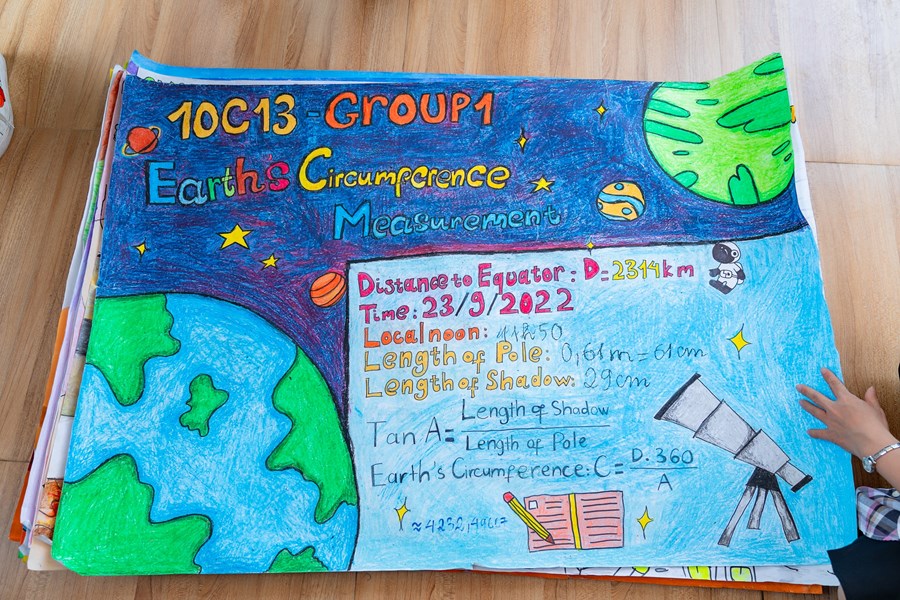 10C13 - GROUP1
Earth's Circumference
Measurement
Distance to Equator: D=2314km
Time: 23/9/2022
Local noon: 11h50
Length of Pole: 0,61m=61cm
Length of Shadow: 29cm
Tan A= Length of Shadow
Length of Pole
Earth's Circumference: C= D.360
A